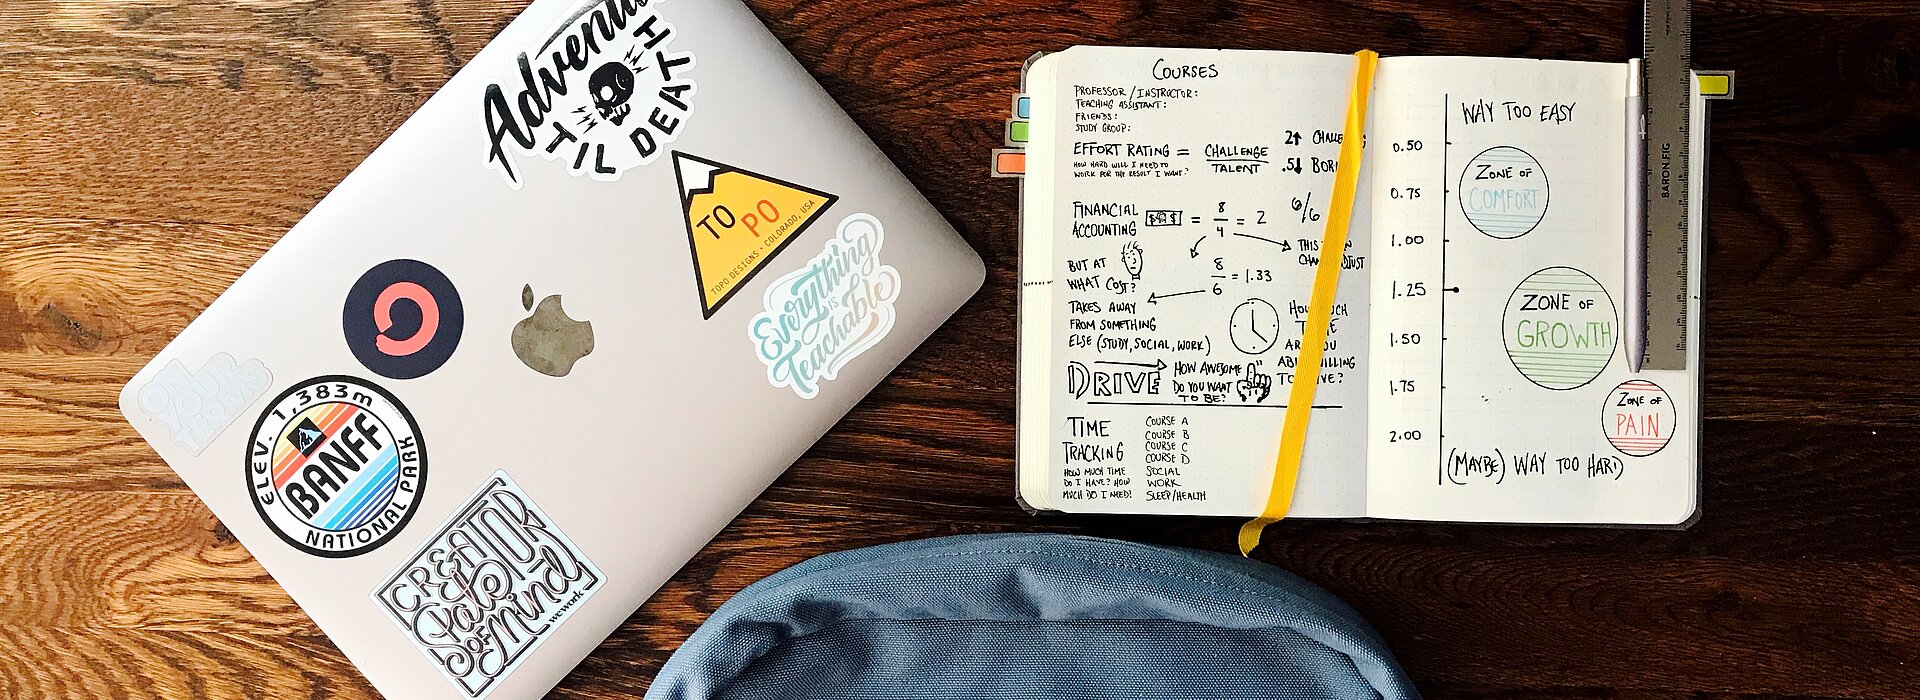 Adventu
TIL DEATH
TO PO
TOPO DESIGNS · COLORADO, USA
Everything
is
Teachable
ON
YOUR
TERMS
ELEV. 1,383m
BANFF
NATIONAL PARK
CREATOR
State
OF Mind
wework
COURSES
PROFESSOR/INSTRUCTOR:
TEACHING ASSISTANT:
FRIENDS:
STUDY GROUP:
EFFORT RATING = CHALLENGE
TALENT
HOW HARD WILL I NEED TO
WORK FOR THE RESULT I WANT?
2↑ CHALLE
.5↓ BOR
FINANCIAL
ACCOUNTING
= 8/4 = 2
6/6
8/6 = 1.33
BUT AT
WHAT COST?
TAKES AWAY
FROM SOMETHING
ELSE (STUDY, SOCIAL, WORK)
DRIVE
HOW AWESOME
DO YOU WANT
TO BE?
TIME
TRACKING
HOW MUCH TIME
DO I HAVE? HOW
MUCH DO I NEED?
COURSE A
COURSE B
COURSE C
COURSE D
SOCIAL
WORK
SLEEP/HEALTH
WAY TOO EASY
0.50
0.75
1.00
1.25
1.50
1.75
2.00
ZONE OF
COMFORT
ZONE OF
GROWTH
ZONE OF
PAIN
(MAYBE) WAY TOO HARD
BARON FIG